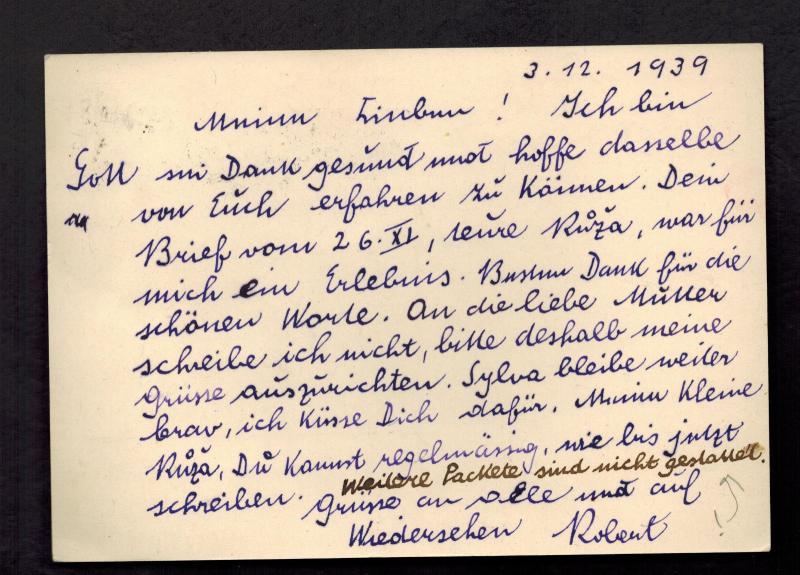 3. 12. 1939
Meine Lieben! Ich bin
Gott sei Dank gesund und hoffe dasselbe
von Euch erfahren zu können. Dein
Brief vom 26. XI, teure Růža, war für
mich ein Erlebnis. Besten Dank für die
schönen Worte. An die liebe Mutter
schreibe ich nicht, bitte deshalb meine
Grüsse auszurichten. Sylva bleibe weiter
brav, ich küsse Dich dafür. Meine Kleine
Růža, Du kannst regelmässig, wie bis jetzt
schreiben. Weitere Packete sind nicht gestattet.
Grüsse an alle und auf
Wiedersehen Robert